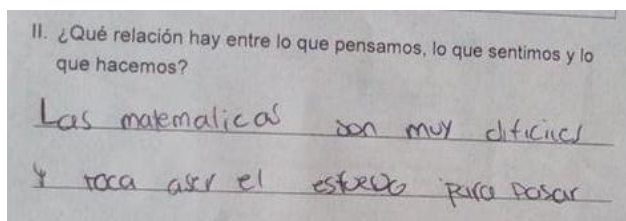 II. ¿Qué relación hay entre lo que pensamos, lo que sentimos y lo
que hacemos?
Las matematicas son muy dificiles
y toca aser el esfuerzo para pasar